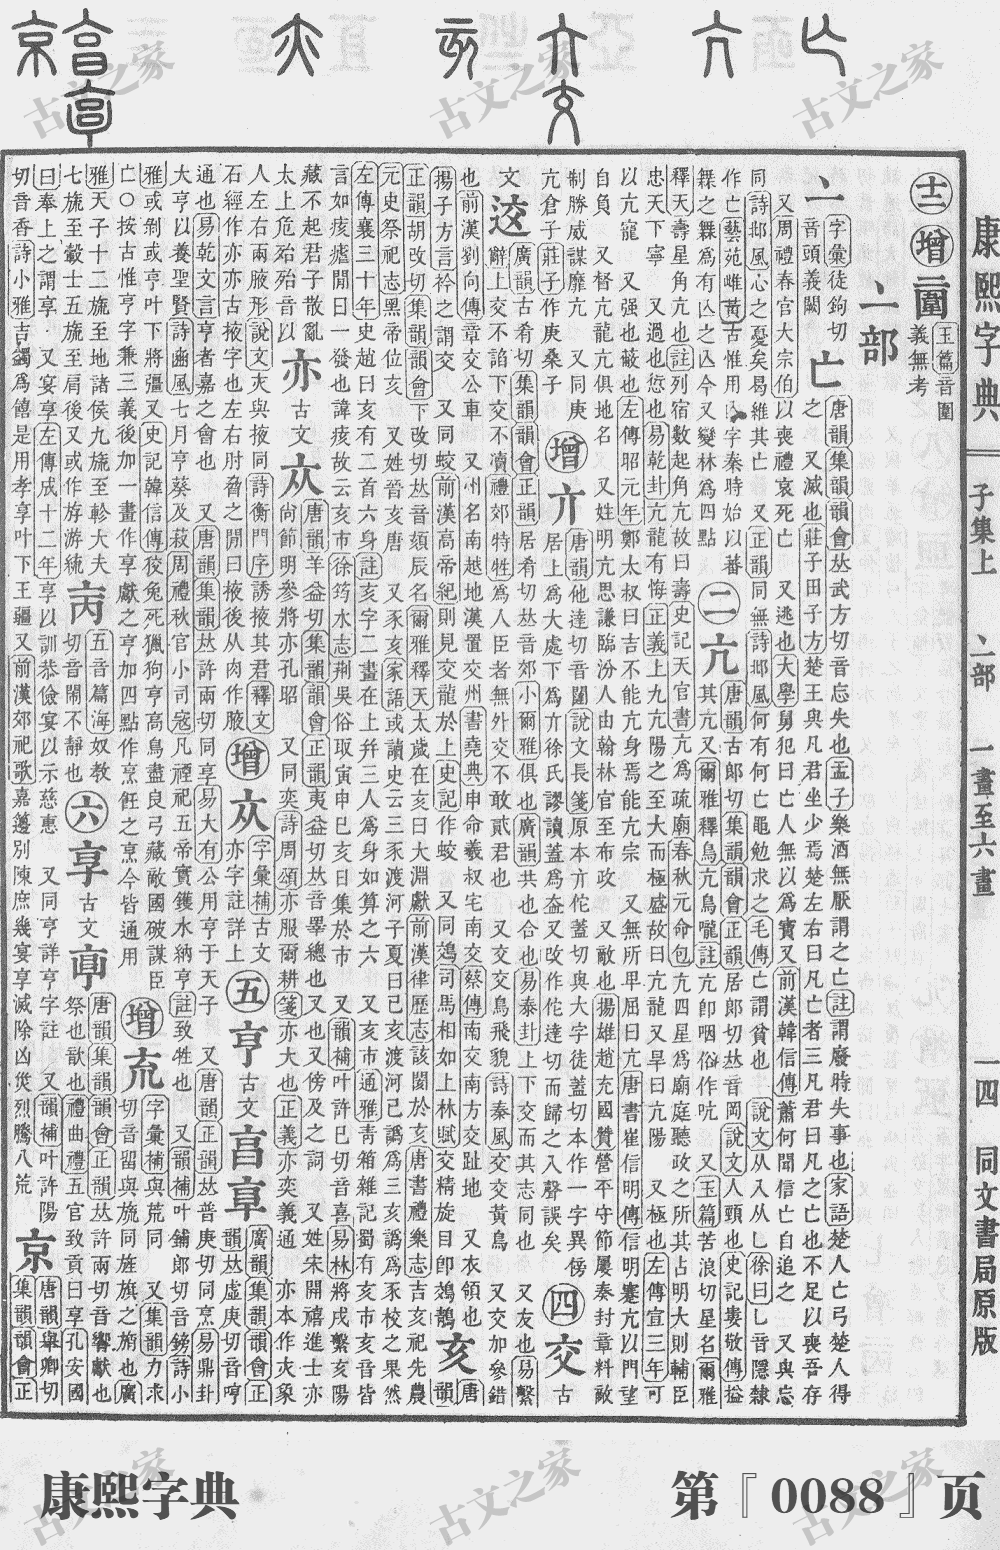 康熙字典 子集上 亠部 一畫至六畫 一四 同文書局原版
十二 增 玉篇音圍
義無考
亠部
亠 字彙徒鉤切
音頭義闕
亡 唐韻集韻韻會𠀤武方切音忘失也孟子樂酒無厭謂之亡註謂廢時失事也家語楚人亡弓楚人得
之 又滅也莊子田子方楚王與凡君坐少焉楚左右曰凡亡者三凡君曰凡之亡也不足以喪吾存
又周禮春官大宗伯以喪禮哀死亡 又逃也大學舅犯曰亡人無以為寶又前漢韓信傳蕭何聞信亡自追之 又與忘
同詩邶風心之憂矣曷維其亡 又正韻同無詩邶風何有何亡黽勉求之毛傳亡謂貧也 說文从入从乚徐曰乚音隱隸
作亡藝苑雌黃古惟用亡字秦時始以蕃
橆之橆為有亡之亡今又變林為四點
二 亢 唐韻古郎切集韻韻會正韻居郎切𠀤音岡說文人頸也史記婁敬傳搤
其亢 又爾雅釋鳥亢鳥嚨註亢卽咽俗作吭 又玉篇苦浪切星名爾雅
釋天壽星角亢也註列宿數起角亢故曰壽史記天官書亢為疏廟春秋元命包亢四星為廟庭聽政之所其占明大則輔臣
忠天下寧 又過也愆也易乾卦亢龍有悔正義上九亢陽之至大而極盛故曰亢龍又旱曰亢陽 又極也左傳宣三年可
以亢寵 又强也蔽也左傳昭元年鄭太叔曰吉不能亢身焉能亢宗 又無所𤰞屈曰亢唐書崔信明傳信明蹇亢以門望
自負 又督亢龍亢俱地名 又姓明亢思謙臨汾人由翰林官至布政 又敵也揚雄趙充國贊營平守節屢奏封章料敵
制勝威謀靡亢 又同庚
亢倉子莊子作庚桑子
增 亣 唐韻他達切音闥說文長箋原本亣佗蓋切與大字徒蓋切本作一字異傍
居上為大處下為亣徐氏謬讀蓋為盍又攺作佗達切而歸之入聲誤矣
四 交 古
文 㳀 廣韻古肴切集韻韻會正韻居肴切𠀤音郊小爾雅俱也廣韻共也合也易泰卦上下交而其志同也 又友也易繫
辭上交不諂下交不瀆禮郊特牲為人臣者無外交不敢貳君也 又交交鳥飛貌詩秦風交交黃鳥 又交加參錯
也前漢劉向傳章交公車 又州名南越地漢置交州書堯典申命羲叔宅南交蔡傳南交南方交趾地 又衣領也
揚子方言衿之謂交 又同蛟前漢高帝紀則見交龍於上史記作蛟 又同鵁司馬相如上林賦交精旋目卽鵁鶄
亥 唐韻
正韻胡改切集韻韻會下改切𠀤音頦辰名爾雅釋天太歲在亥曰大淵獻前漢律歷志該閡於亥唐書禮樂志吉亥祀先農
元史祭祀志黑帝位亥 又姓晉亥唐 又豕亥家語或讀史云三豕渡河子夏曰己亥渡河己譌為三亥譌為豕校之果然
左傳襄三十年史趙曰亥有二首六身註亥字二畫在上幷三人為身如算之六 又亥市通雅靑箱雜記蜀有亥市亥音皆
言如痎瘧閒日一發也諱痎故云亥市徐筠水志荆吳俗取寅申巳亥日集於市 又韻補叶許已切音喜易林將戌繫亥陽
藏不起君子散亂
太上危殆殆音以
亦 古文 𠅃 唐韻羊益切集韻韻會正韻夷益切𠀤音睪總也又也又傍及之詞 又姓宋開禧進士亦
尙節明參將亦孔昭 又同奕詩周頌亦服爾耕箋亦大也正義亦奕義通 亦本作㚒象
人左右兩腋形說文㚒與掖同詩衡門序誘掖其君釋文
石經作亦亦古掖字也左右肘脅之閒曰掖後从肉作腋
增 字彙補古文
亦字註詳上
五 亨 古文 廣韻集韻韻會正
韻𠀤虛庚切音哼
通也易乾文言亨者嘉之會也 又唐韻集韻𠀤許兩切同享易大有公用亨于天子 又唐韻正韻𠀤普庚切同烹易鼎卦
大亨以養聖賢詩豳風七月亨葵及菽周禮秋官小司寇凡禋祀五帝實鑊水納亨註致牲也 又韻補叶鋪郎切音鎊詩小
雅或剝或亨叶下將彊又史記韓信傳狡兔死獵狗亨高鳥盡良弓藏敵國破謀臣
亡○按古惟亨字兼三義後加一畫作享獻之亨加四點作烹飪之烹今皆通用
增 㐬 字彙補與荒同 又集韻力求
切音留與旒同旌旗之斿也廣
雅天子十二旒至地諸侯九旒至軫大夫
七旒至轂士五旒至肩後又或作斿游統
五音篇海奴教
切音鬧不靜也
六 享 古文 亯 唐韻集韻韻會正韻𠀤許兩切音響獻也
祭也歆也禮曲禮五官致貢曰享孔安國
曰奉上之謂享 又宴享左傳成十二年享以訓恭儉宴以示慈惠 又同亨詳亨字註 又韻補叶許陽
切音香詩小雅吉蠲為饎是用孝享叶下王疆又前漢郊祀歌嘉籩列陳庶幾宴享滅除凶災烈騰八荒
京 唐韻舉卿切
集韻韻會正
康熙字典
第『0088』页
古文之家